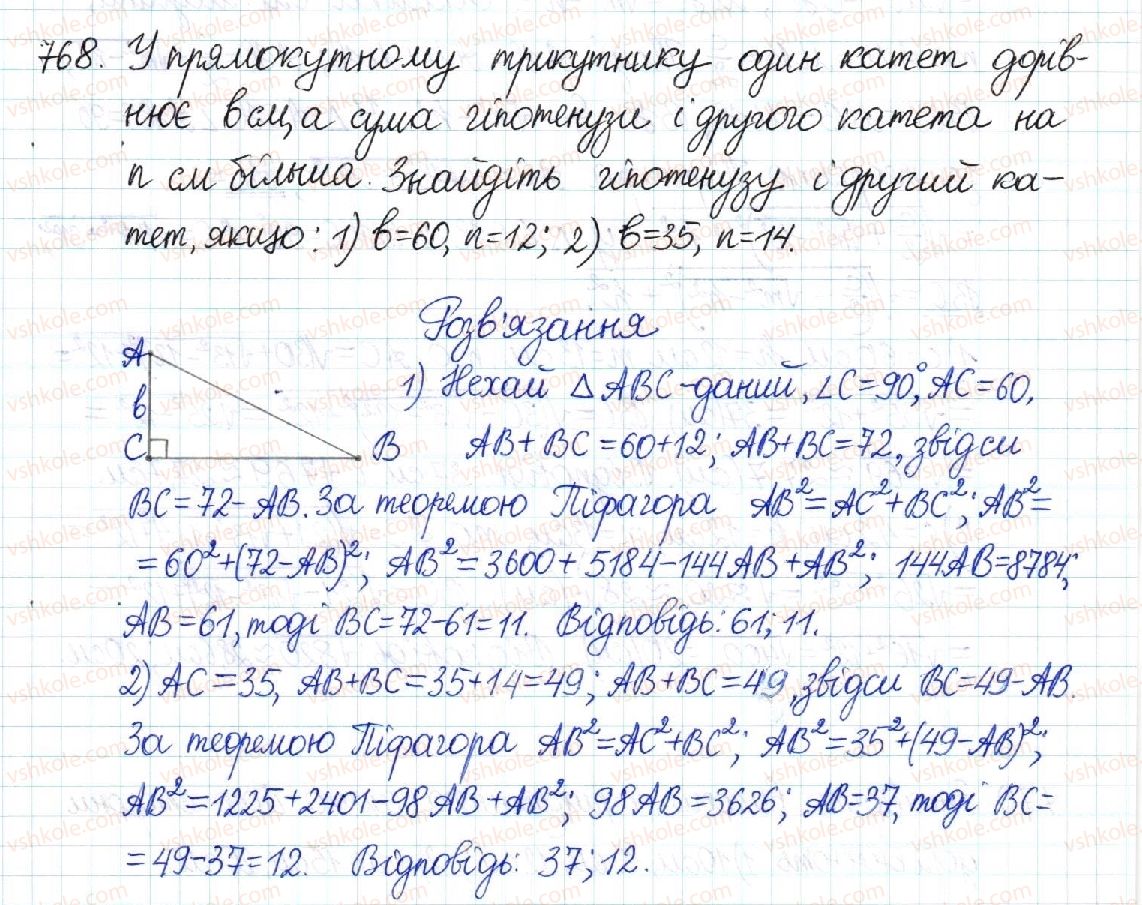 768. У прямокутному трикутнику один катет дорів-
нює в см, а сума гіпотенузи і другого катета на
n см більша. Знайдіть гіпотенузу і другий ка-
тет, якщо: 1) в=60, n=12; 2) в=35, n=14.
Розв'язання
A
в
C
B
1) Нехай △ ABC - даний, ∠C=90°, AC=60,
AB+BC=60+12; AB+BC=72, звідси
BC=72-AB. За теоремою Піфагора AB²=AC²+BC²; AB²=
=60²+(72-AB)²; AB²=3600+5184-144AB+AB²; 144AB=8784;
AB=61, тоді BC=72-61=11. Відповідь: 61; 11.
2) AC=35, AB+BC=35+14=49; AB+BC=49, звідси BC=49-AB.
За теоремою Піфагора AB²=AC²+BC²; AB²=35²+(49-AB)²;
AB²=1225+2401-98AB+AB²; 98AB=3626; AB=37, тоді BC=
=49-37=12. Відповідь: 37; 12.
vshkole.com